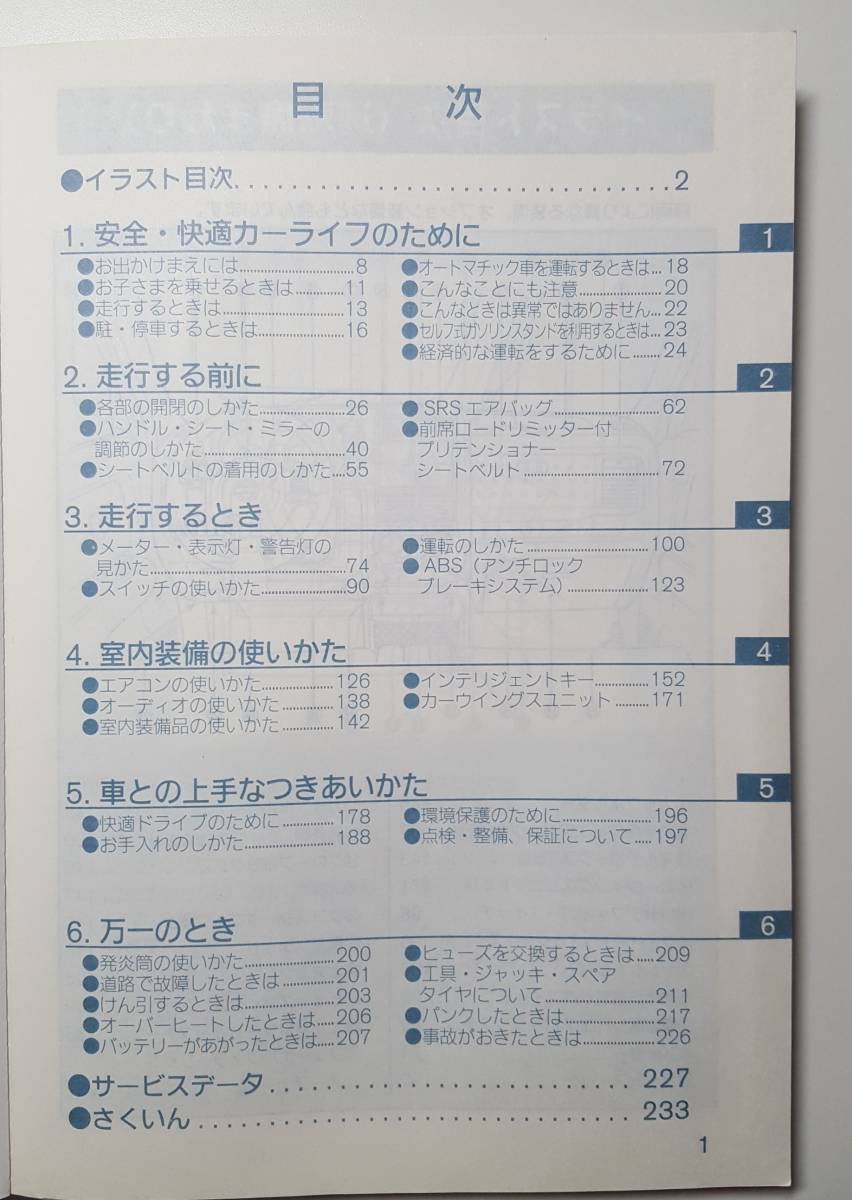 目 次
●イラスト目次................................2
1. 安全・快適カーライフのために
1
●お出かけまえには................8
●お子さまを乗せるときは............11
●走行するときは................13
●駐・停車するときは................16
●オートマチック車を運転するときは...18
●こんなことにも注意................20
●こんなときは異常ではありません...22
●セルフ式ガソリンスタンドを利用するときは...23
●経済的な運転をするために........24
2. 走行する前に
2
●各部の開閉のしかた................26
●ハンドル・シート・ミラーの
調節のしかた................40
●シートベルトの着用のしかた....55
●SRSエアバッグ................62
●前席ロードリミッター付
プリテンショナー
シートベルト................72
3. 走行するとき
3
●メーター・表示灯・警告灯の
見かた................74
●スイッチの使いかた................90
●運転のしかた................100
●ABS（アンチロック
ブレーキシステム）................123
4. 室内装備の使いかた
4
●エアコンの使いかた................126
●オーディオの使いかた............138
●室内装備品の使いかた............142
●インテリジェントキー............152
●カーウイングスユニット..........171
5. 車との上手なつきあいかた
5
●快適ドライブのために............178
●お手入れのしかた................188
●環境保護のために................196
●点検・整備、保証について.....197
6. 万一のとき
6
●発炎筒の使いかた................200
●道路で故障したときは............201
●けん引するときは................203
●オーバーヒートしたときは.....206
●バッテリーがあがったときは.....207
●ヒューズを交換するときは.....209
●工具・ジャッキ・スペア
タイヤについて................211
●パンクしたときは................217
●事故がおきたときは................226
●サービスデータ............................227
●さくいん................................233
1